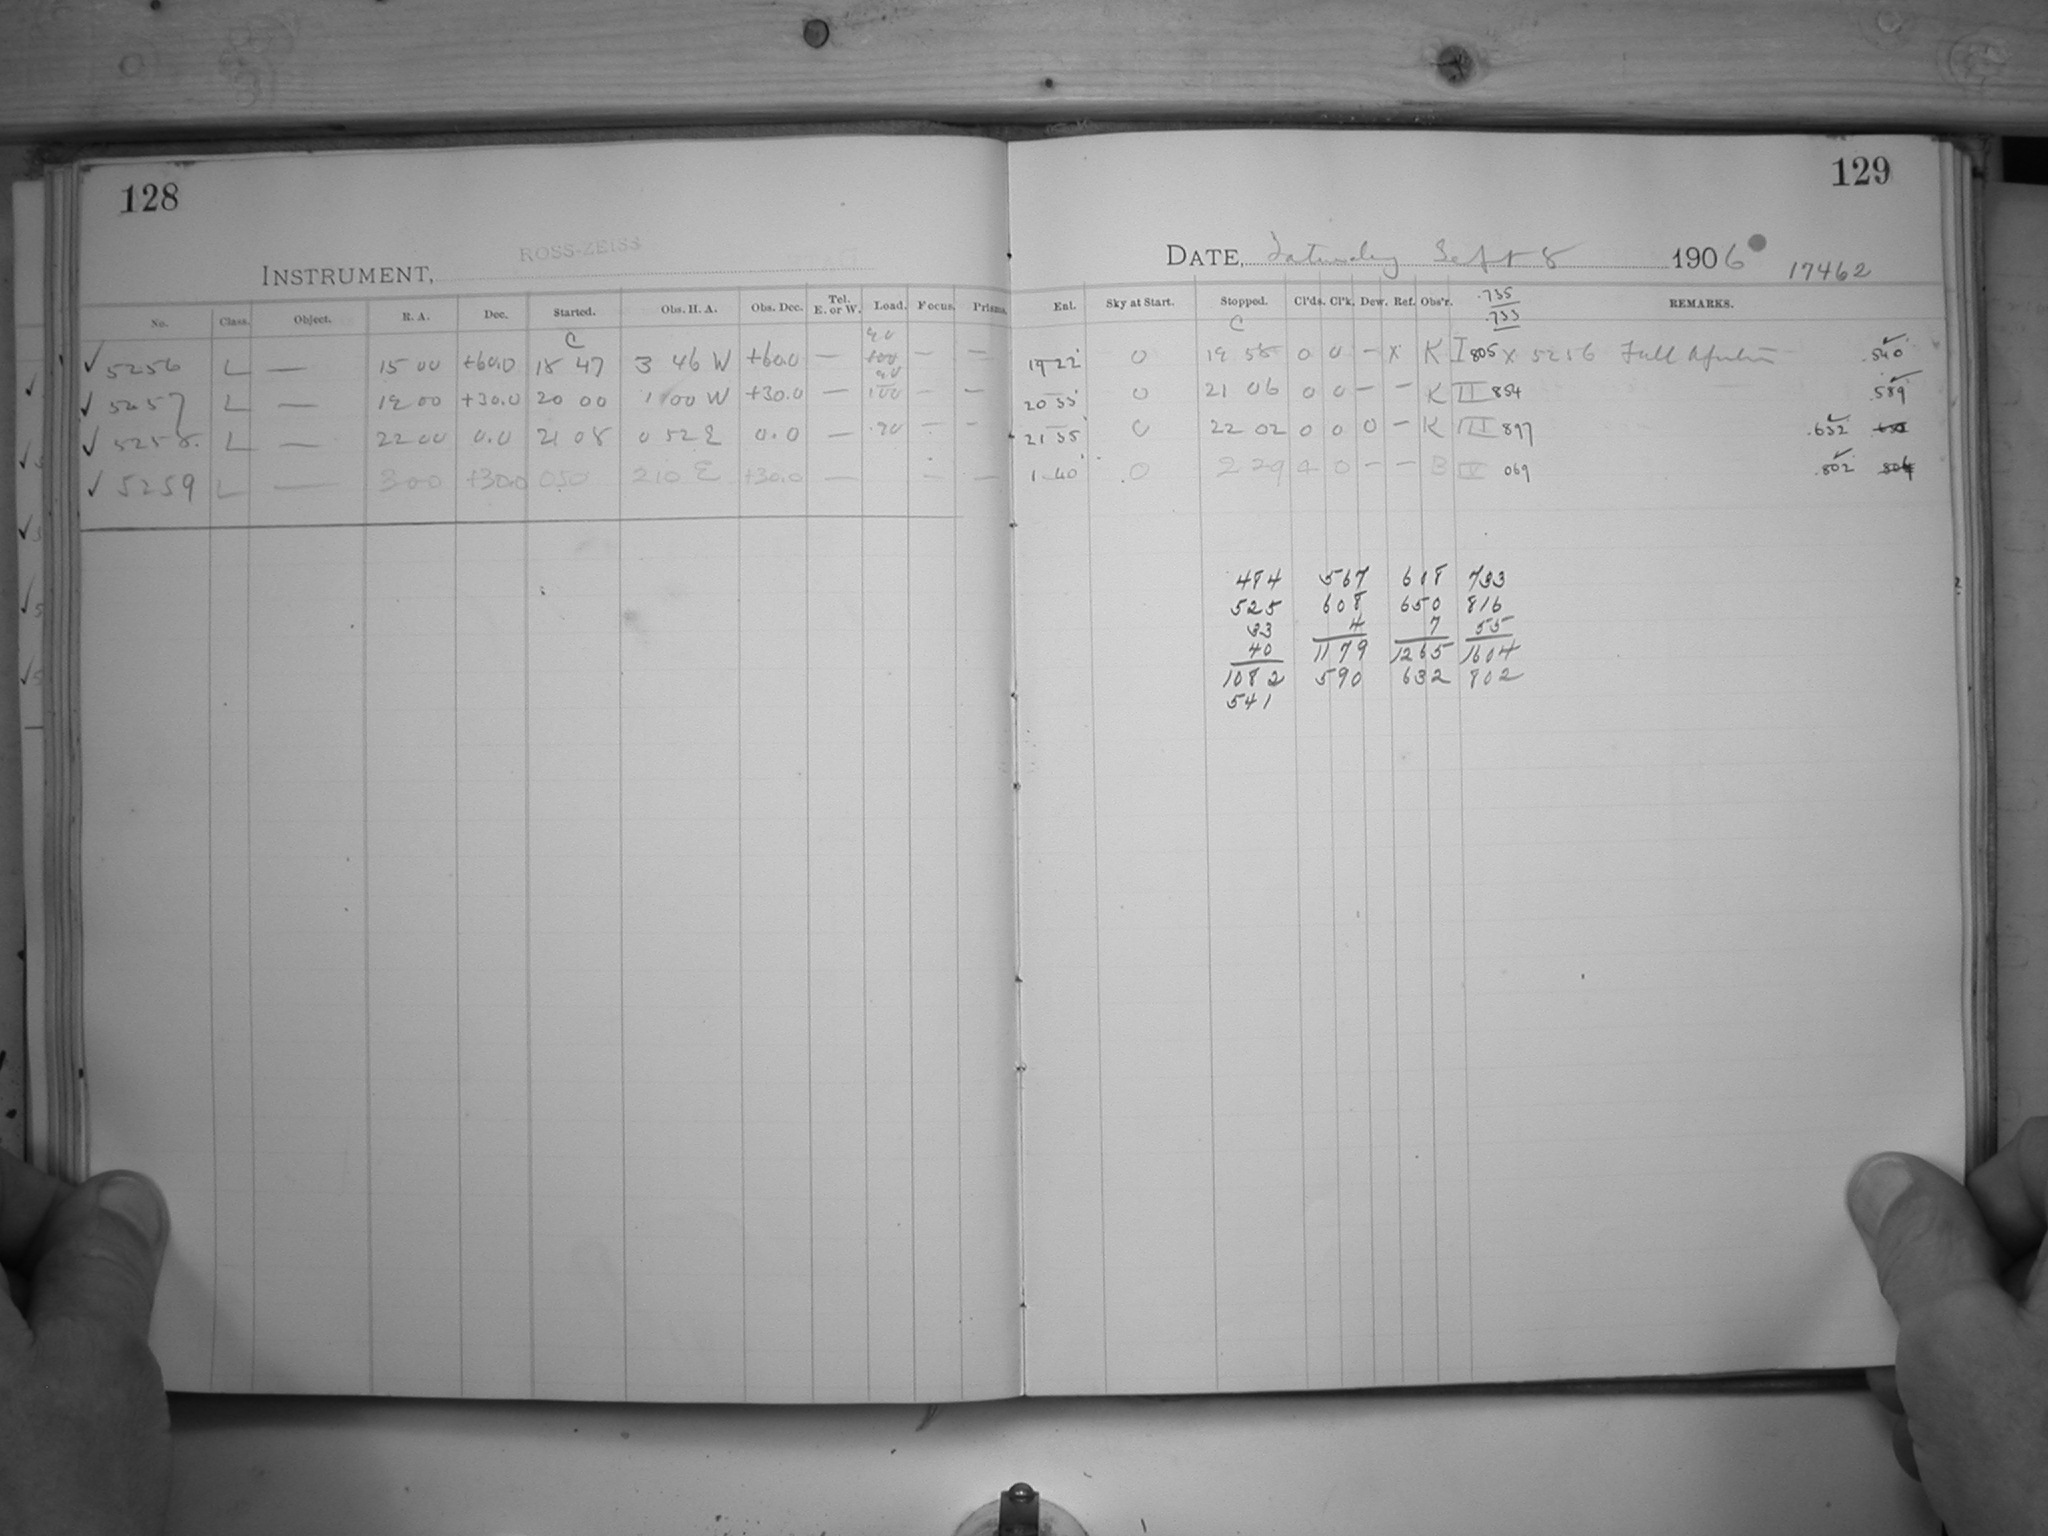 128
ROSS-ZEISS
INSTRUMENT,
No. Class. Object. R. A. Dec. Started. Obs. H. A. Obs. Dec. Tel. E. or W. Load. Focus. Prisms.
C
✓ 5256 L — 15 00 +60.0 18 47 3 46 W +60.0 — 90 100 — —
✓ 5257 L — 19 00 +30.0 20 00 1 00 W +30.0 — 90 100 — —
✓ 5258. L — 22 00 0.0 21 08 0 52 E 0.0 — .90 — —
✓ 5259 L — 3 00 +30.0 0 50 2 10 E +30.0 — — —
129
DATE, Saturday Sept 8 1906 17462
Ent. Sky at Start. Stopped. Cl'ds. Cl'k. Dew. Ref. Obs'r. .735 .733 REMARKS.
C
19 22 0 19 58 0 0 — x K I 805 x 5256 Full .540
20 33 0 21 06 0 0 — — K II 854 .589
21 35 0 22 02 0 0 0 — K III 897 .632
1 40 0 2 29 0 — — B IV 069 .802
484 567 618 733
525 608 650 816
33 4 7 55
40 1179 1265 1604
1082 590 632 802
541